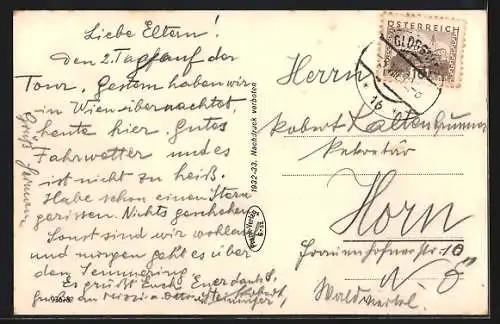 Liebe Eltern!
Den 2. Tag auf der
Tour. Gestern haben wir
in Wien übernachtet,
heute hier. Gutes
Fahrwetter und es
ist nicht zu heiß.
Habe schon einen Stern
gerissen. Nichts geschehen.
Sonst sind wir wohlauf
und morgen geht es über
den Semmering.
Es grüßt Euch Euer dankb.
Gruß Hermann
1932-33. Nachdruck verboten
ÖSTERREICH
GLOGGNITZ
16
Herrn
Robert Kaltenbrunner
Sekretär
Horn
10
N.Ö.
Waldviertel.